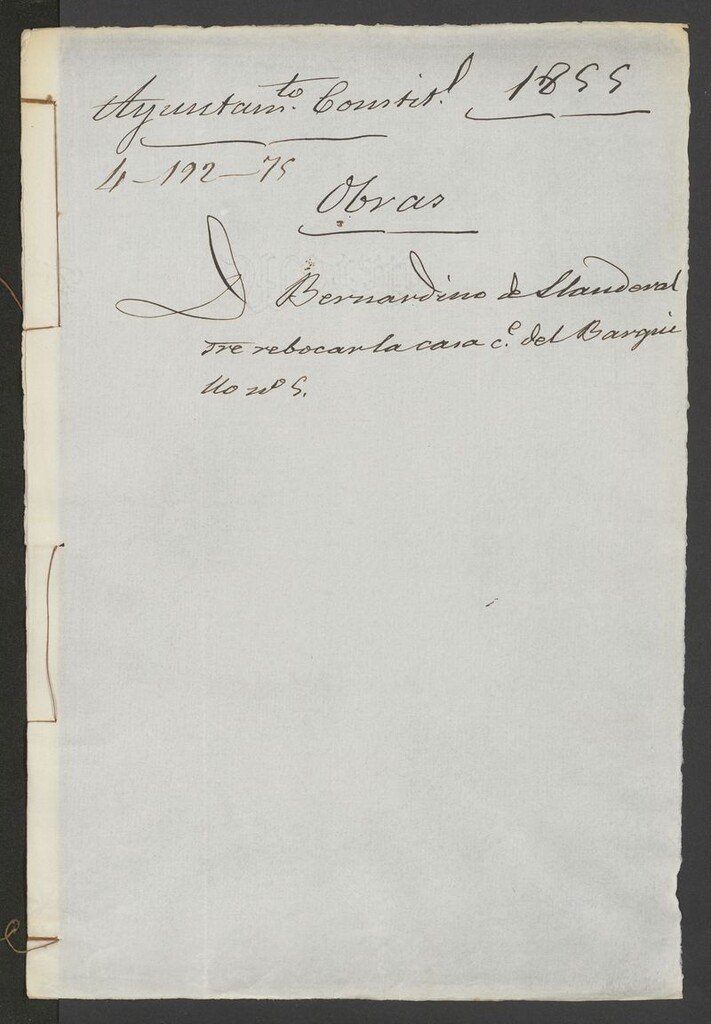 Ayuntam.to Constit.l 1855
4-192-75
Obras
D Bernardino de Llanderal
sre rebocar la casa c.e del Barqui
llo nº 5.